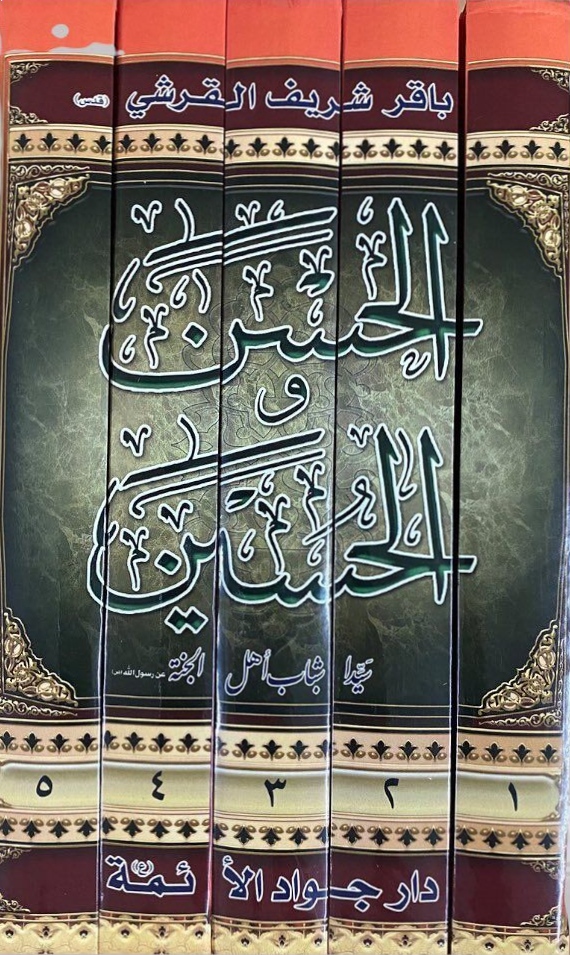 باقر شريف القرشي (قدس)
الحسن
و
الحسين
سيّدا شباب أهل الجنة عن رسول الله (ص)
١ ٢ ٣ ٤ ٥
دار جواد الأئمة (ع)